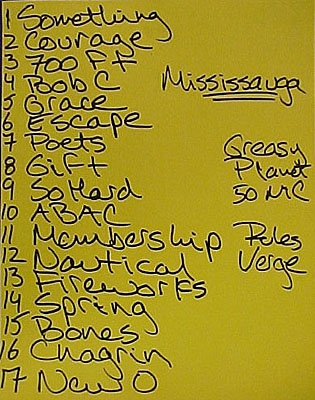 1 Something
2 Courage
3 700 Ft
4 Bob C
5 Grace
6 Escape
7 Poets
8 Gift
9 So Hard
10 ABAC
11 Membership
12 Nautical
13 Fireworks
14 Spring
15 Bones
16 Chagrin
17 New O
Mississauga
Greasy
Planet
50 MC
Rules
Verge